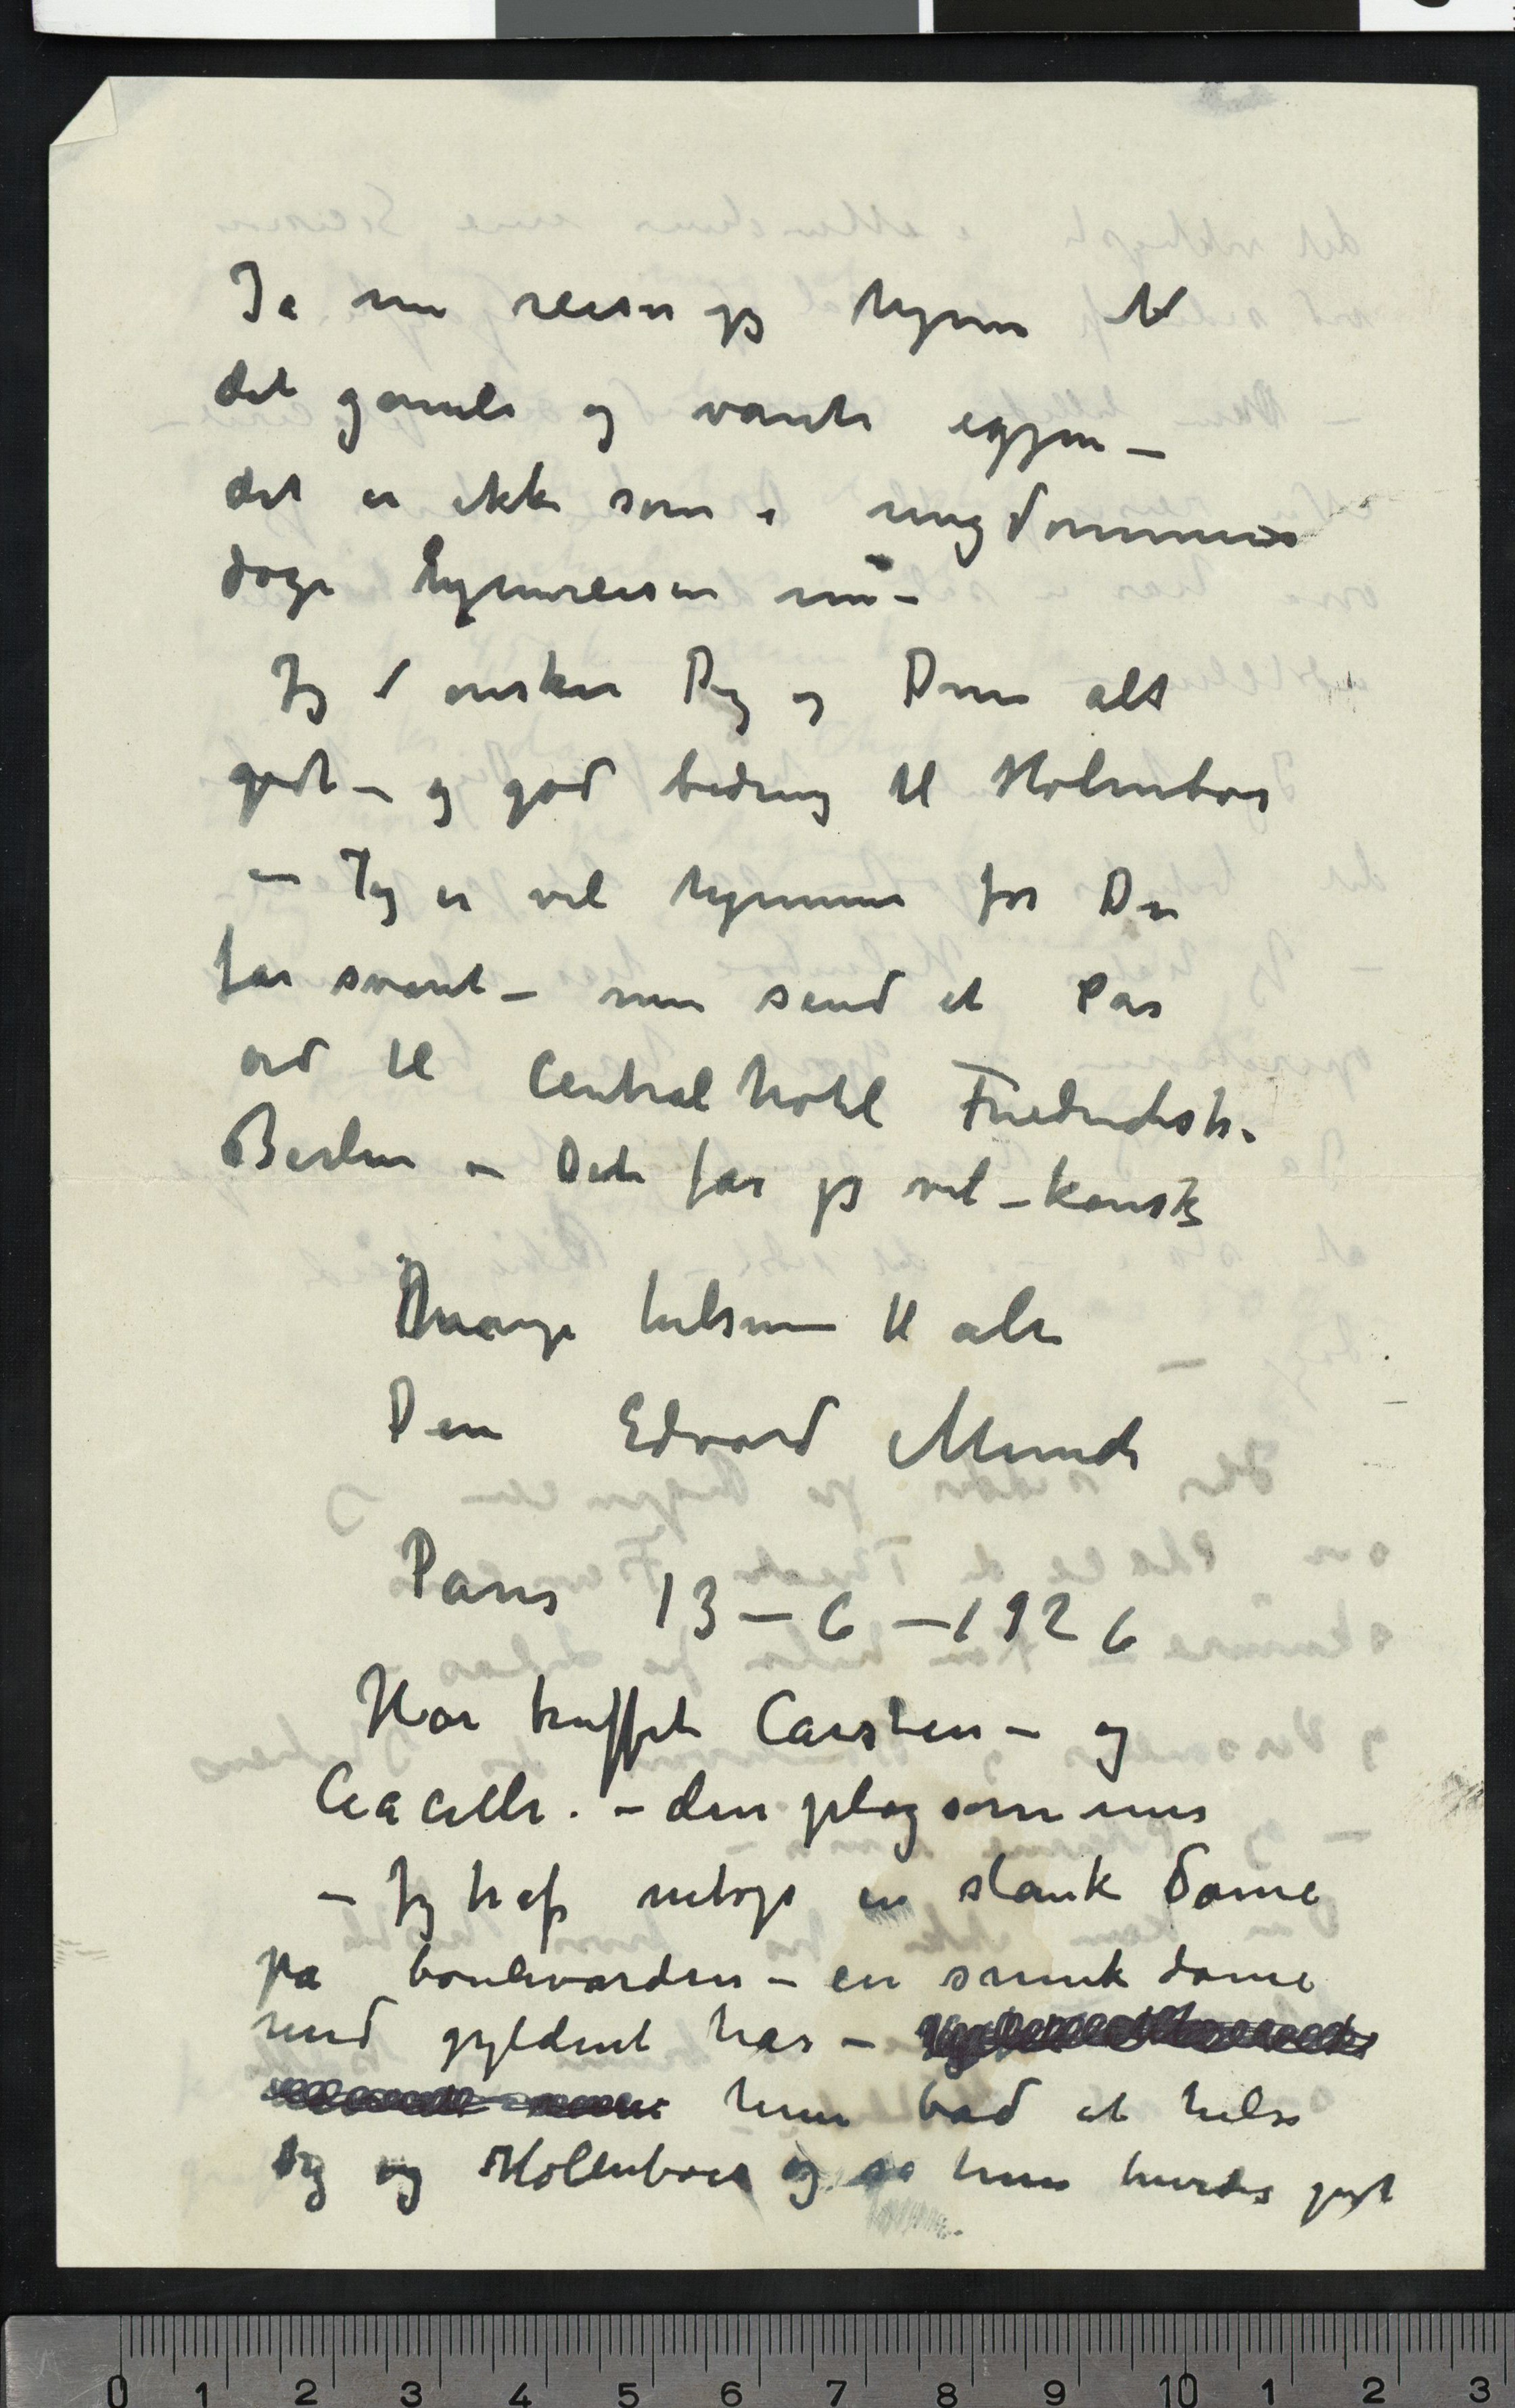 Ja nu reiser jg hjem til
det gamle og vante igjen –
det er ikke som i ungdommens
dage hjemreisen nu –
Jg ønsker Dig og Dine alt
godt – og god bedring til Holmboe
– Jeg er vel hjemme før Du
får svaret – men send et Par
ord til Centralhotel Friedrichstr.
Berlin – Det får jg vel – kanske
Mange hilsener til alle
Din Edvard Munch
Paris 13–6–1926
Har truffet Carsten – og
den plagsomme
– Jg traf netop en slank Dame
på boulevarden – en smuk dame
med gyldent hår –
hun bad at hilse
Dig og Holmboe og så hun